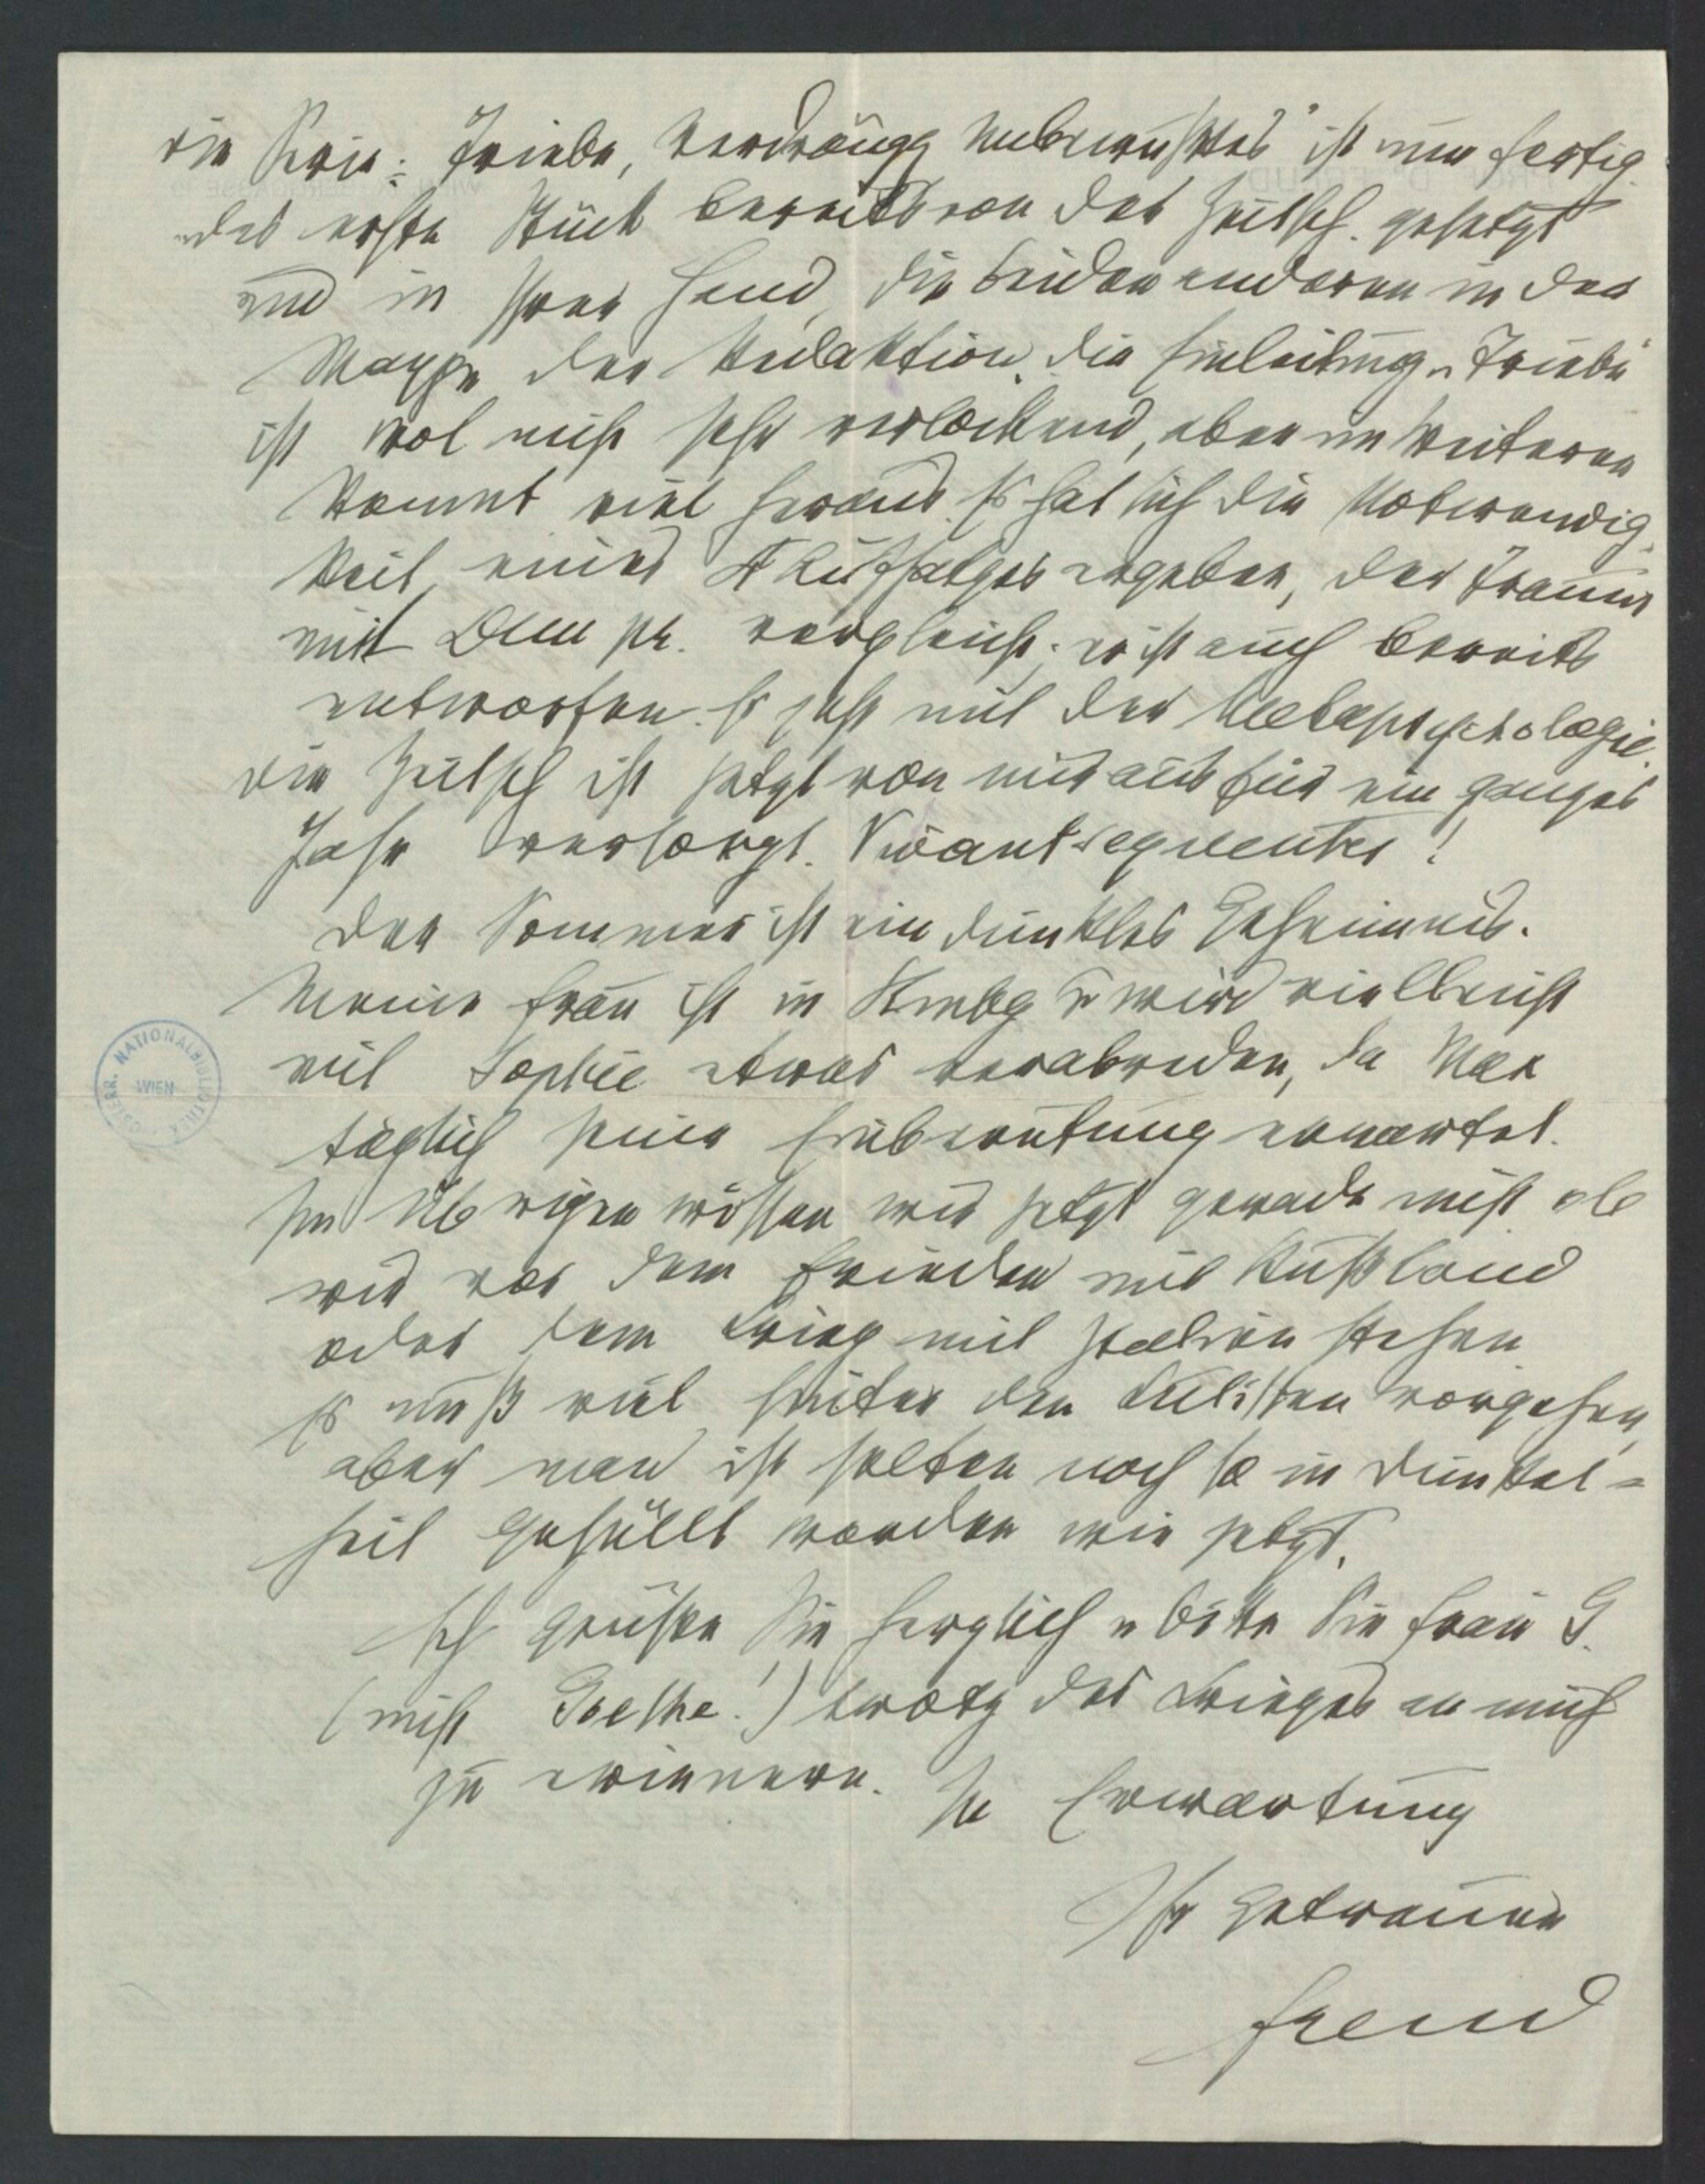 Die Reihe: Triebe, Verdrängg Unbewußtes" ist nun fertig
das erste Stück bereits von der Zeitsch. gesetzt
und in Ihrer Hand, die beiden anderen in der
Mappe der Redaktion. Die Einleitung „Triebe"
ist wol nicht sehr verlockend, aber im Weiteren
kommt viel heraus. Es hat sich die Notwendig-
keit eines 4 Aufsatzes ergeben, der Traum
mit Dem pr. vergleicht; er ist auch bereits
entworfen. Es geht mit der Metapsychologie.
Die Zeitsch ist jetzt von mir aus für ein ganzes
Jahr versorgt. Vivant sequentes!
Der Sommer ist ein dunkles Geheimnis.
Meine Frau ist in Hmbg u wird vielleicht
mit Sophie etwas verabreden, da Max
täglich seine Einberufung erwartet.
Im Übrigen wissen wir jetzt gerade nicht ob
wir vor dem Frieden mit Rußland
oder dem Krieg mit Italien stehen
Es muß viel hinter den Kulissen vorgehen,
aber man ist selten noch so in Dunkel=
heit gehüllt worden wie jetzt.
Ich grüße Sie herzlich u bitte Sie Frau G.
(nicht Goethe!) trotz des Krieges an mich
zu erinnern. In Erwartung
Ihr getreuer
Freud
ÖSTERR. NATIONALBIBLIOTHEK
WIEN